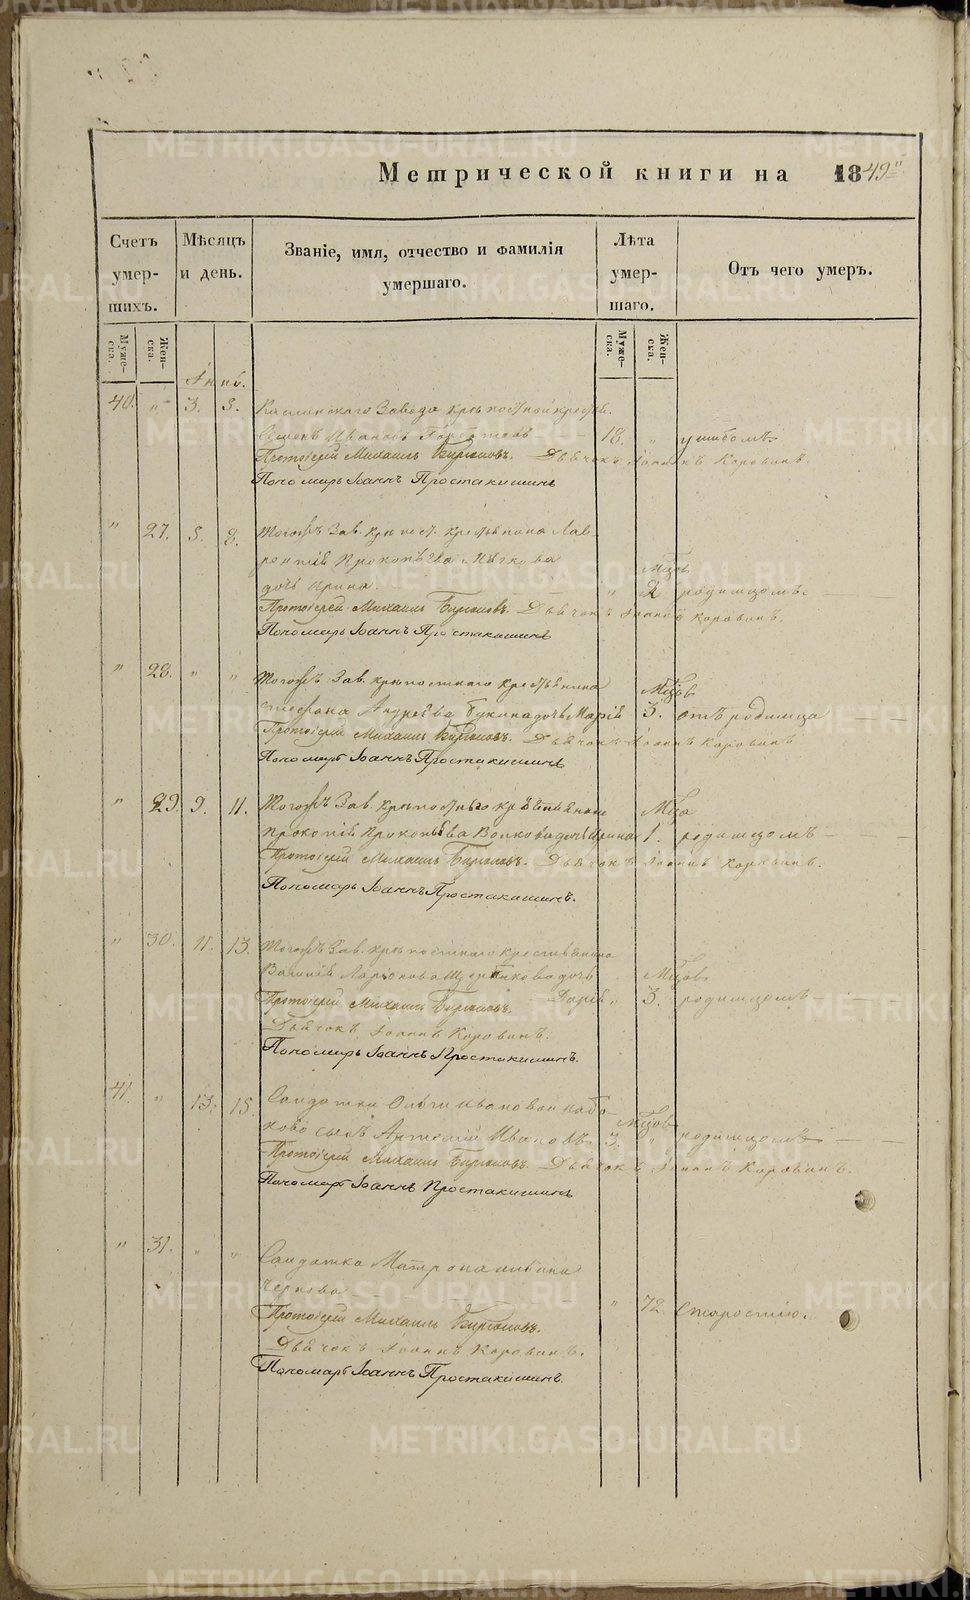 Метрической книги на 1849 й
Счетъ умер- шихъ.
Мѣсяцъ и день.
Званіе, имя, отчество и фамилія умершаго.
Лѣта умер- шаго.
Отъ чего умеръ.
Муже- ска.
Жен- ска.
Муже- ска.
Жен- ска.
40. " 3. 5. Каслинскаго Завода крѣпостной
Семенъ Ивановъ 18. " ушибомъ
Протоіерей Михаилъ Бирюковъ. Дьячокъ Іоаннъ Коровинъ.
Пономарь Іоаннъ Простакишинъ
" 27. 5. 8. Тогожъ Зав. крѣпост. крестьянина Лав-
рентія Прокопьева Мѣсяцовъ
дочь Ирина " 2 родимцомъ.
Протоіерей Михаилъ Бирюковъ. Дьячокъ Іоаннъ Коровинъ.
Пономарь Іоаннъ Простакишинъ
" 28. " " Тогожъ Зав. крѣпостнаго крестьянина
Стефана Андреева дочь Марія 3. отъ родимца
Протоіерей Михаилъ Бирюковъ. Дьячокъ Іоаннъ Коровинъ
Пономарь Іоаннъ Простакишинъ
" 29. 9. 11. Тогожъ Зав. крѣпостнаго крестьянина
Прокопія Прокопьева Волкова дочь Ирина 1. родимцомъ
Протоіерей Михаилъ Бирюковъ. Дьячокъ Іоаннъ Коровинъ.
Пономарь Іоаннъ Простакишинъ.
" 30. 11. 13. Тогожъ Зав. крѣпостнаго крестьянина
Василія Ларіонова дочь
Протоіерей Михаилъ Бирюковъ. Дарья " 3. родимцомъ
Дьячокъ Іоаннъ Коровинъ.
Пономарь Іоаннъ Простакишинъ.
41. " 13. 15. Солдатки Ольги Ивановой
сынъ Артемій Ивановъ 3. " родимцомъ
Протоіерей Михаилъ Бирюковъ. Дьячокъ Іоаннъ Коровинъ.
Пономарь Іоаннъ Простакишинъ
" 31. " " Солдатка Матрона
" 72. старостію.
Протоіерей Михаилъ Бирюковъ.
Дьячокъ Іоаннъ Коровинъ.
Пономарь Іоаннъ Простакишинъ.
METRIKI.GASO-URAL.RU